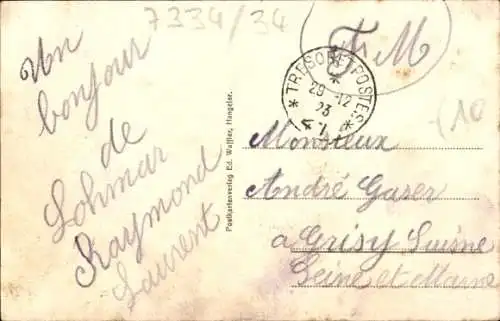 7334/34
Un
bonjour
de
Lohmar
Raymond
Laurent
Postkartenverlag Ed. Waffler, Hangelar.
F.M
* TRESOR ET POSTES *
29 -12
23
(10
Monsieur
André Gaser
à Grisy Suisne
Seine et Marne